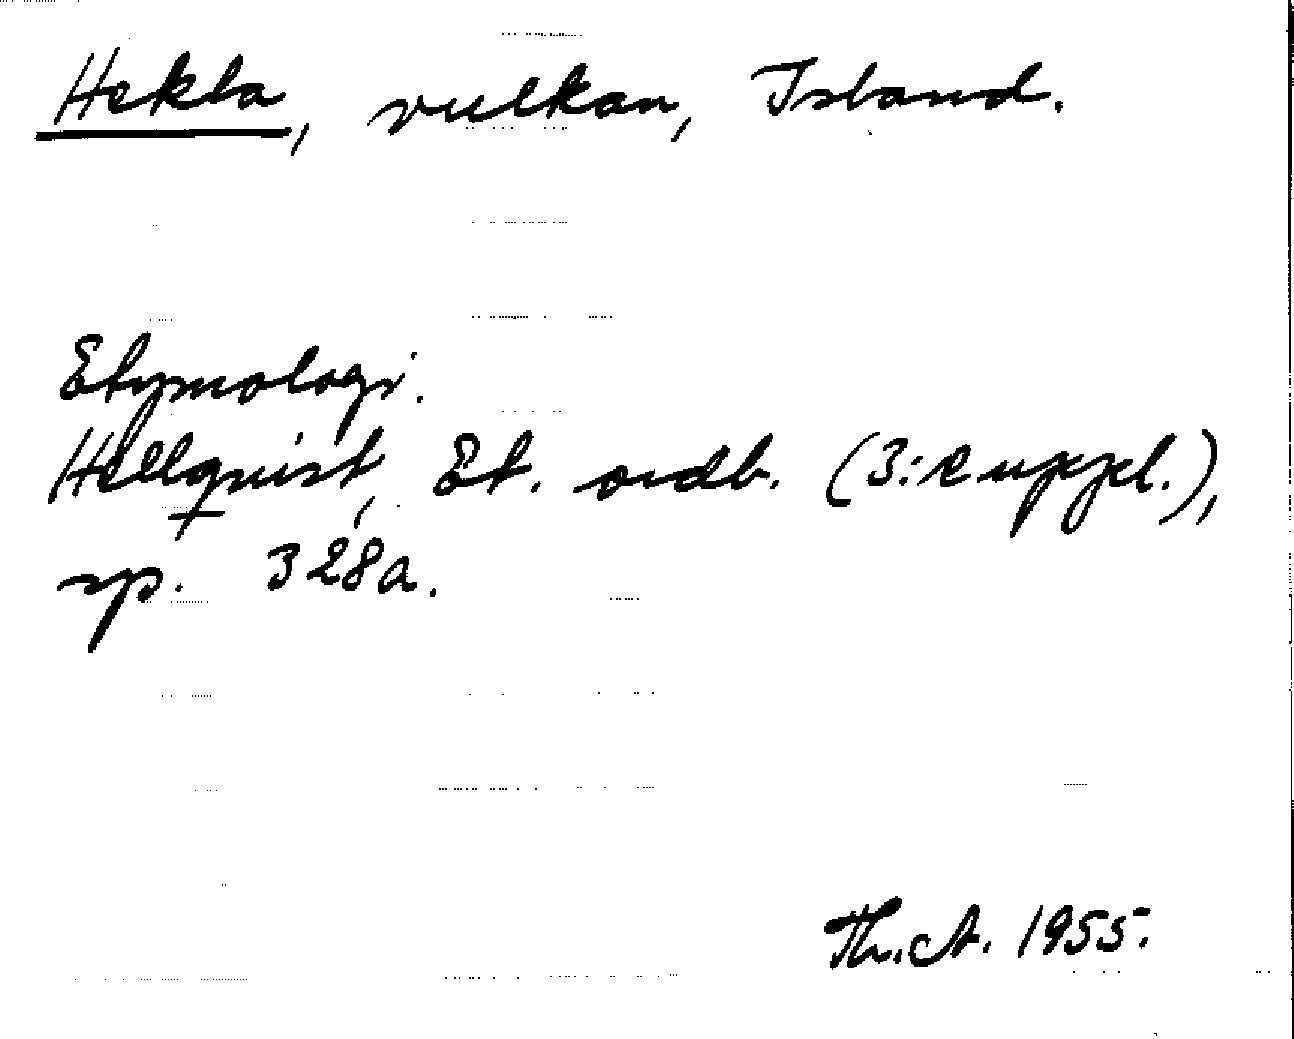 Hekla, vulkan, Island.
Etymologi.
Hellquist, Et. ordb. (3:e uppl.),
sp. 328a.
Th.A. 1955.